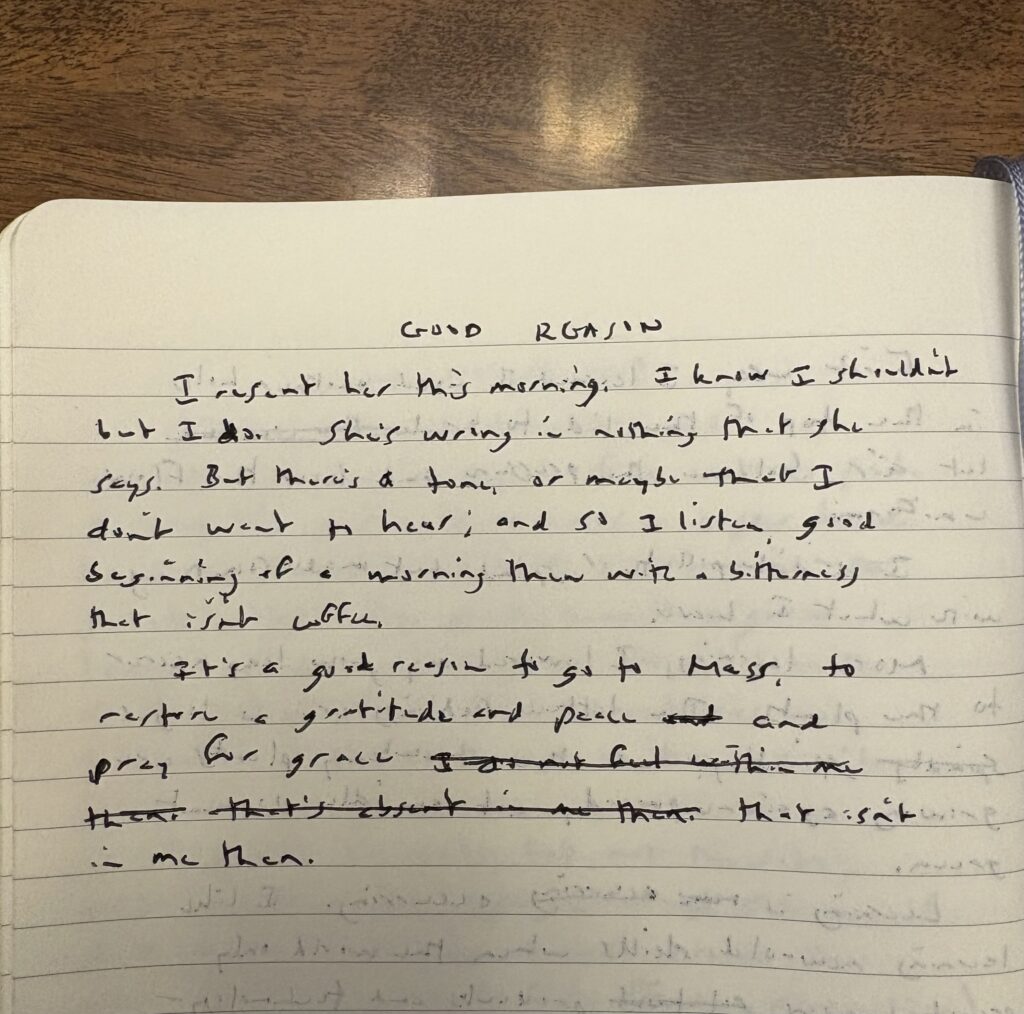 GOOD REASON
I resent her this morning. I know I shouldn't
but I do. She's wrong in nothing that she
says. But there's a tone, or maybe that I
don't want to hear; and so I listen, good
beginning of a morning then with a bitterness
that isn't coffee.
It's a good reason to go to Mass, to
restore a gratitude and peace and and
pray for grace I do not feel within me
then. that's absent in me then. that isn't
in me then.